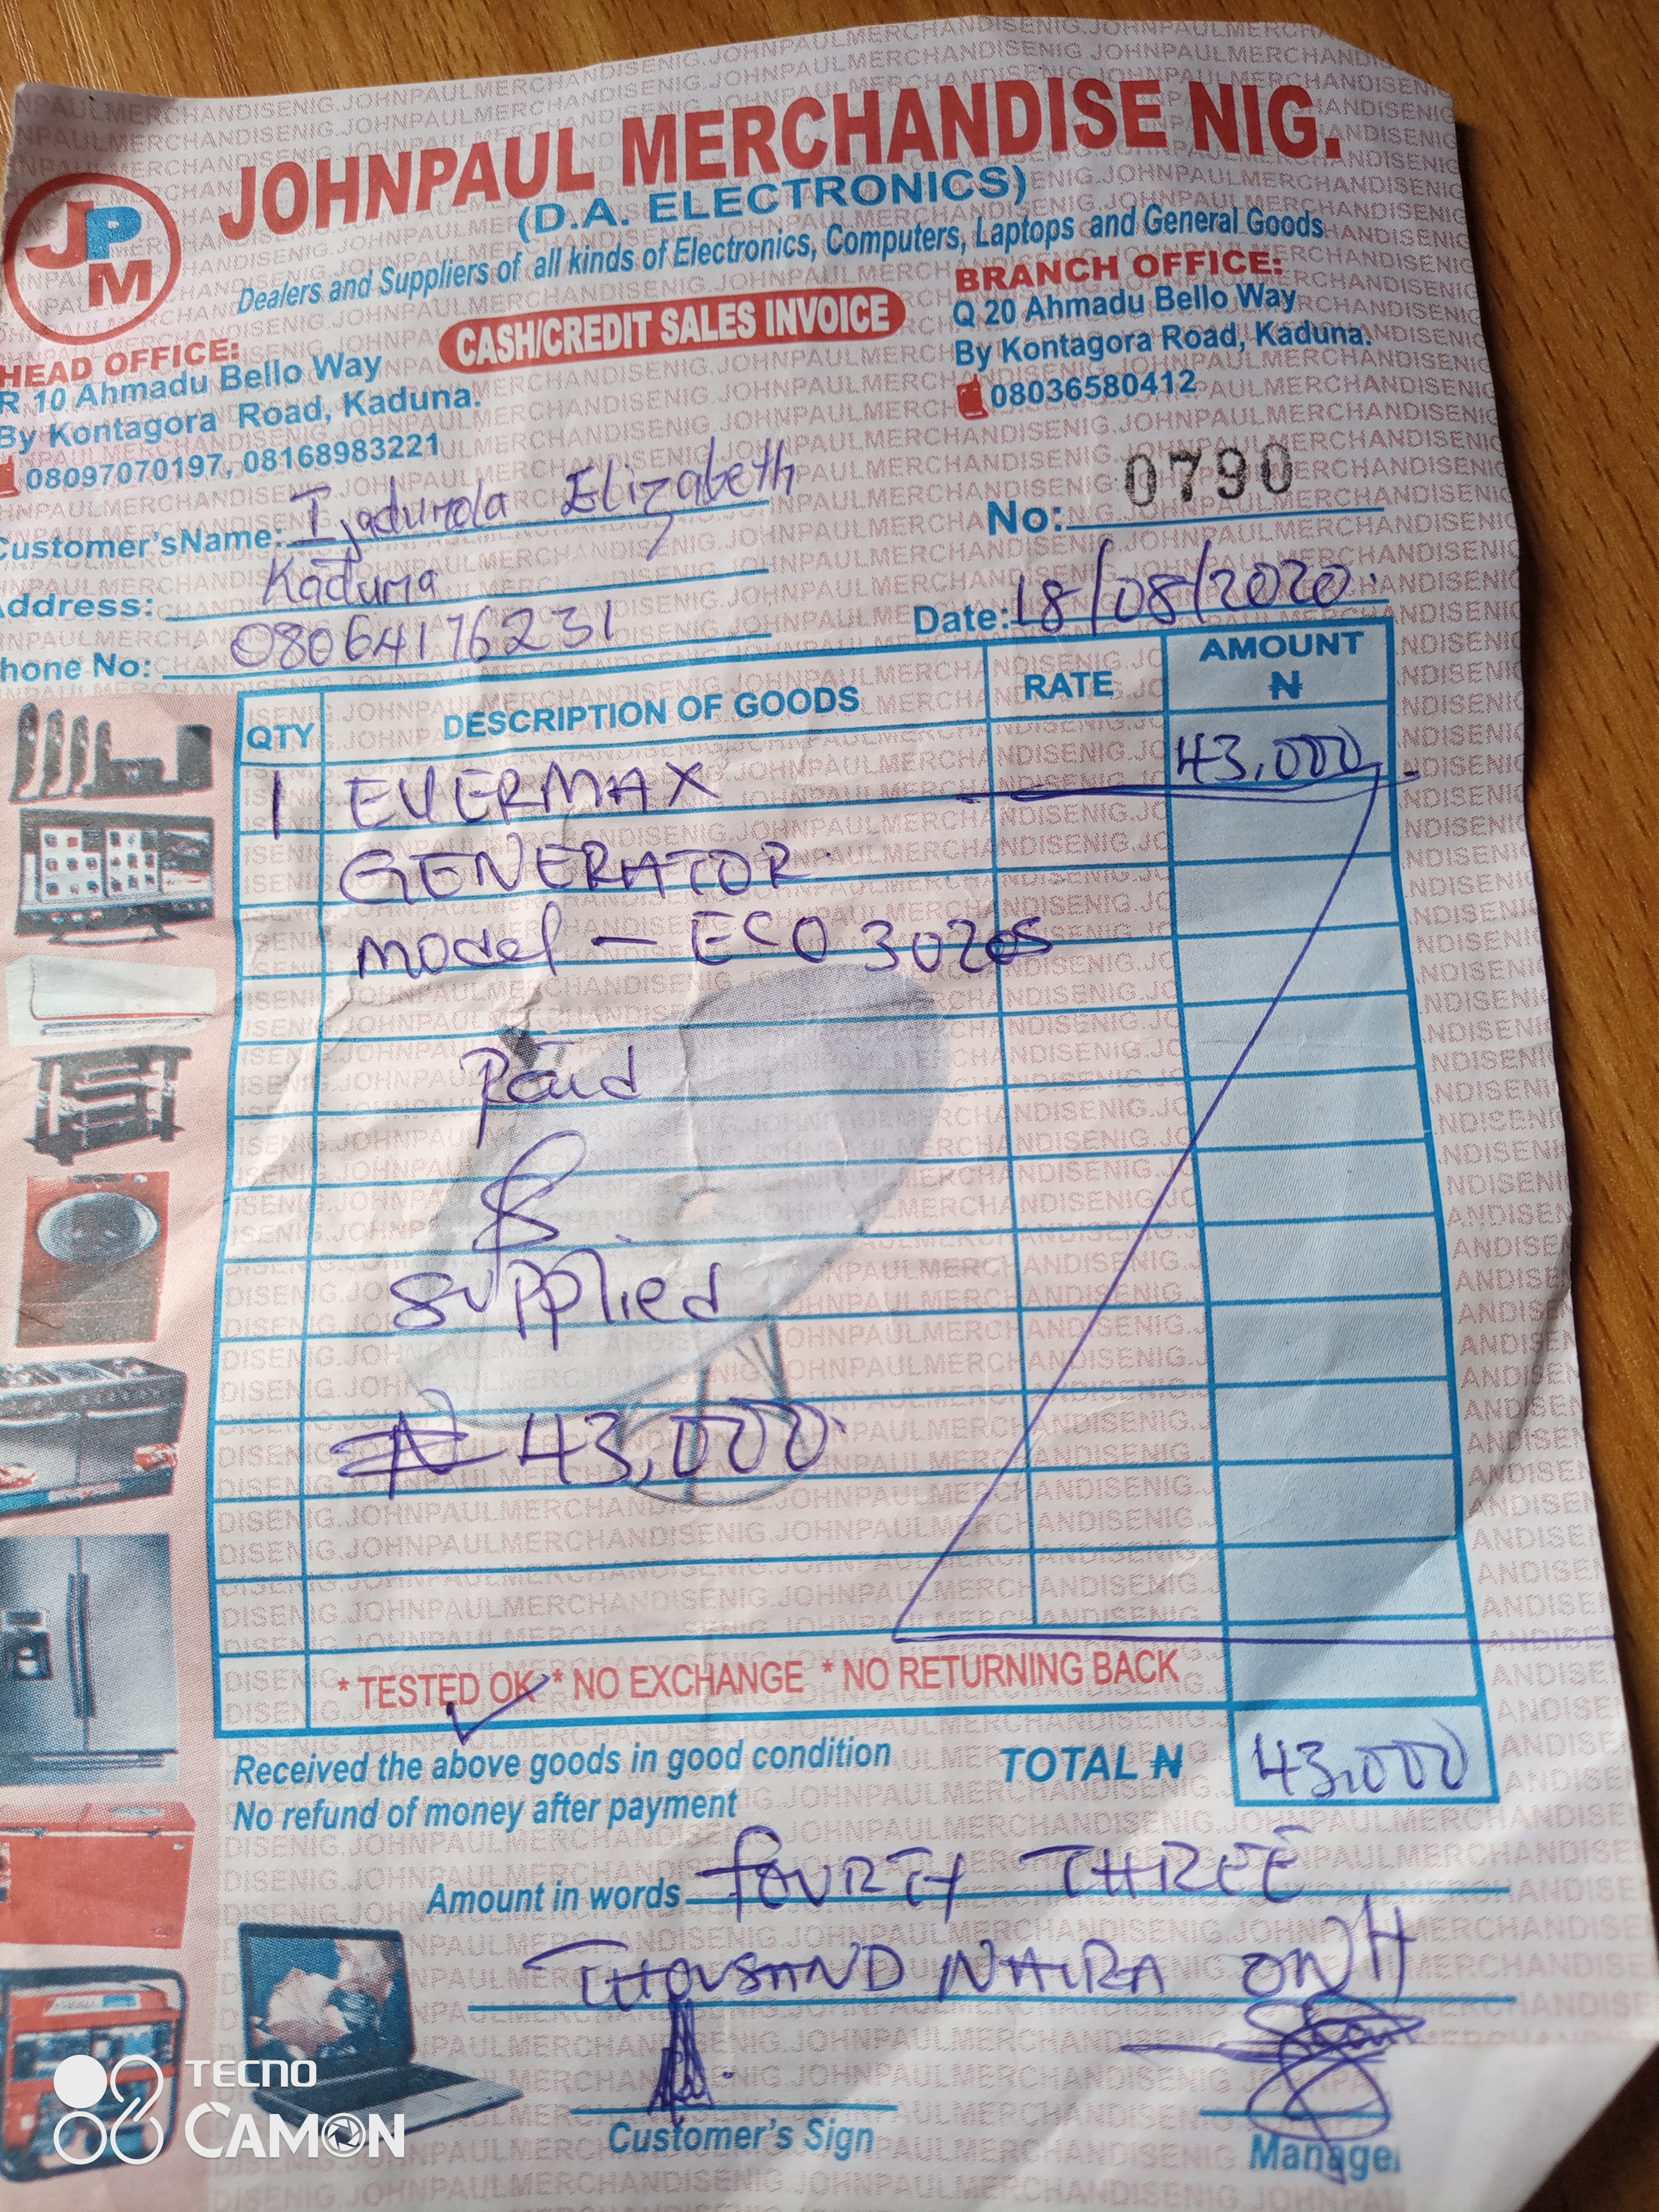 JOHNPAUL MERCHANDISE NIG.
(D.A. ELECTRONICS)
JPM
Dealers and Suppliers of all kinds of Electronics, Computers, Laptops and General Goods
CASH/CREDIT SALES INVOICE
HEAD OFFICE:
R 10 Ahmadu Bello Way
By Kontagora Road, Kaduna.
08097070197, 08168983221
BRANCH OFFICE:
Q 20 Ahmadu Bello Way
By Kontagora Road, Kaduna.
08036580412
Customer'sName: Ijadunola Elizabeth
No: 0790
Address: Kaduna
Date: 18/08/2020
Phone No: 08064176231
QTY DESCRIPTION OF GOODS RATE AMOUNT ₦
1 EVERMAX 43,000
GENERATOR
model - ECO 3020s
Paid
&
supplied
₦ 43,000
* TESTED OK * NO EXCHANGE * NO RETURNING BACK
Received the above goods in good condition
TOTAL ₦ 43,000
No refund of money after payment
Amount in words fOURTY THREE
THOUSAND NAIRA ONLY
Customer's Sign
Manager
TECNO
CAMON